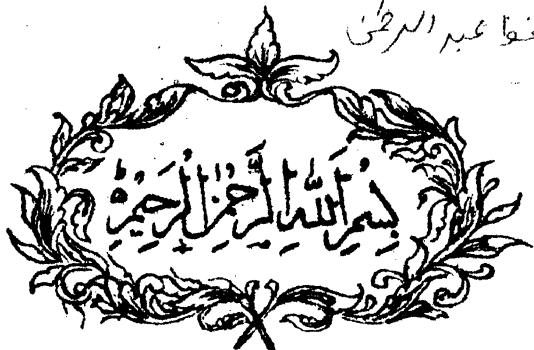 عبد الرحمن
بِسْمِ اللَّهِ الرَّحْمَٰنِ الرَّحِيمِ